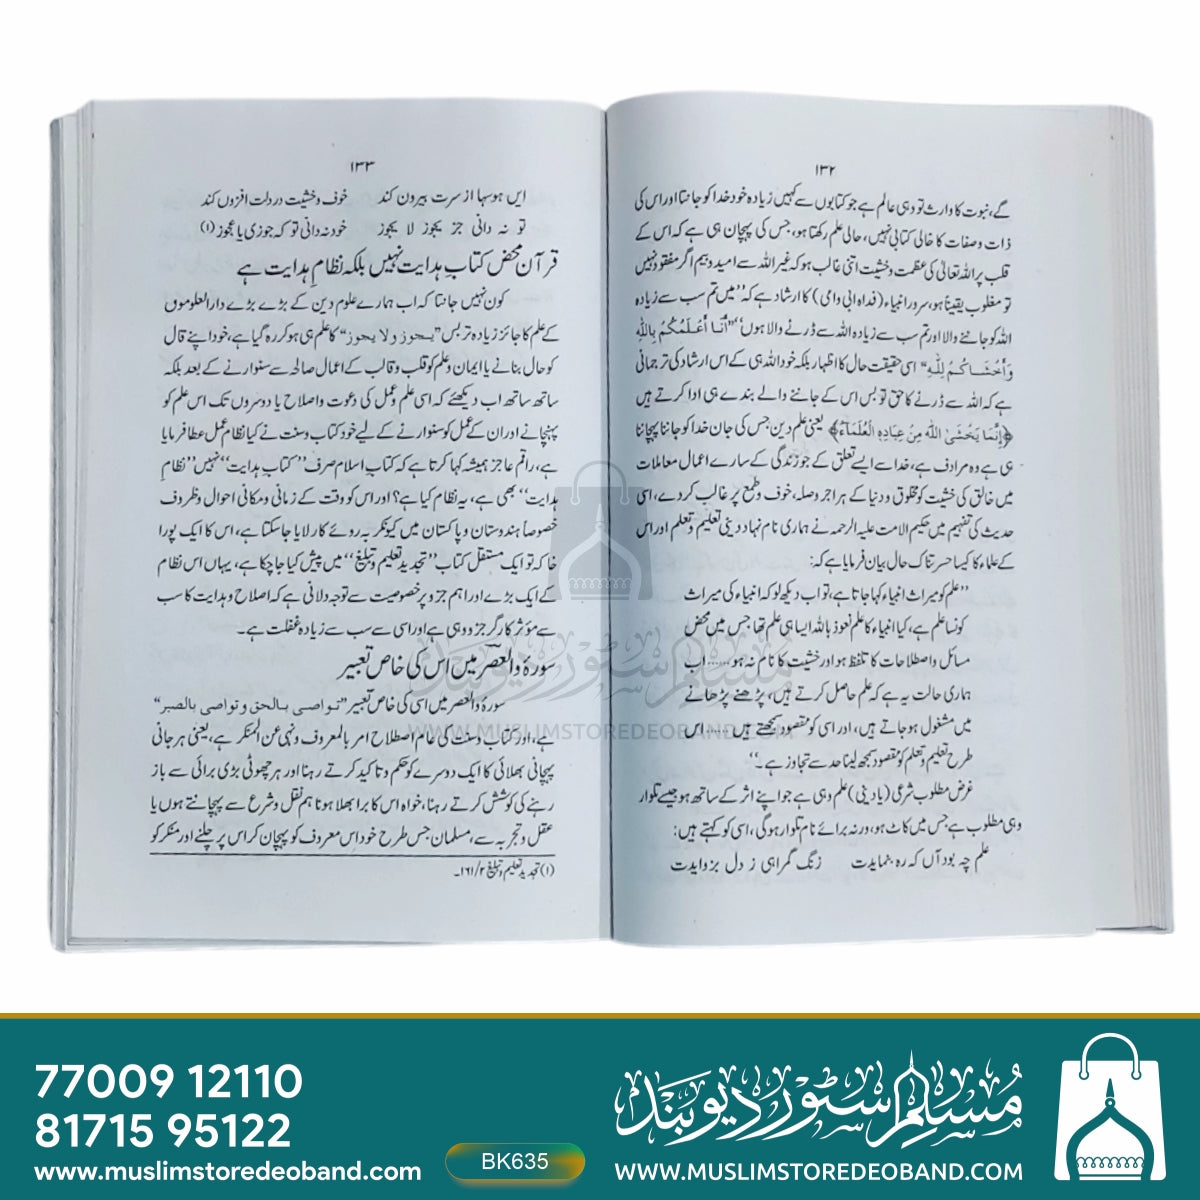 ۱۳۲
گے، نبوت کا وارث تو وہی عالم ہے جو کتابوں سے کہیں زیادہ خود خدا کو جانتا اور اس کی
ذات و صفات کا خالی کتابی نہیں، حالی علم رکھتا ہو، جس کی پہچان ہی ہے کہ اس کے
قلب پر اللہ تعالیٰ کی عظمت و خشیت اتنی غالب ہو کہ غیر اللہ سے امید و بیم اگر مفقود نہیں
تو مغلوب یقیناً ہو، سرور انبیاء (فداہ ابی وامی) کا ارشاد ہے کہ ’’میں تم سب سے زیادہ
اللہ کو جاننے والا اور تم سب سے زیادہ اللہ سے ڈرنے والا ہوں‘‘ ’’أَنَا أَعْلَمُكُمْ بِاللّٰهِ
وَأَخْشَاكُمْ لِلّٰهِ‘‘ اسی حقیقت حال کا اظہار بلکہ خود اللہ ہی کے اس ارشاد کی ترجمانی
ہے کہ اللہ سے ڈرنے کا حق تو بس اس کے جاننے والے بندے ہی ادا کرتے ہیں
﴿إِنَّمَا يَخْشَى اللّٰهَ مِنْ عِبَادِهِ الْعُلَمَآءُ﴾ یعنی علم دین جس کی جان خدا کو جاننا پہچاننا
ہی ہے وہ مرادف ہے، خدا سے ایسے تعلق کے جو زندگی کے سارے اعمال معاملات
میں خالق کی خشیت کو مخلوق و دنیا کے ہر اجر و صلہ، خوف و طمع پر غالب کر دے، اسی
حدیث کی تفہیم میں حکیم الامت علیہ الرحمہ نے ہماری نام نہاد دینی تعلیم و تعلم اور اس
کے علماء کا کیسا حسرتناک حال بیان فرمایا ہے کہ:
’’علم کو میراث انبیاء کہا جاتا ہے، تو اب دیکھ لو کہ انبیاء کی میراث
کونسا علم ہے، کیا انبیاء کا علم نعوذ باللہ ایسا ہی علم تھا جس میں محض
مسائل و اصطلاحات کا تلفظ ہو اور خشیت کا نام نہ ہو...... اب
ہماری حالت یہ ہے کہ علم حاصل کرتے ہیں، پڑھنے پڑھانے
میں مشغول ہو جاتے ہیں، اور اسی کو مقصود سمجھتے ہیں ...... اس
طرح تعلیم و تعلم کو مقصود سمجھ لینا حد سے تجاوز ہے۔‘‘
غرض مطلوب شرعی (یا دینی) علم وہی ہے جو اپنے اثر کے ساتھ ہو جیسے تلوار
وہی مطلوب ہے جس میں کاٹ ہو، ورنہ برائے نام تلوار ہوگی، اسی کو کہتے ہیں:
علم چہ بود آں کہ رہ بنمایدت زنگ گمراہی ز دل بزدایدت
۱۳۳
ایں ہوسہا از سرت بیروں کند خوف و خشیت در دلت افزوں کند
تو نہ دانی جز یجوز لا یجوز خود نہ دانی تو کہ حوری یا عجوز (۱)
قرآن محض کتاب ہدایت نہیں بلکہ نظام ہدایت ہے
کون نہیں جانتا کہ اب ہمارے علوم دین کے بڑے بڑے دار العلوموں
کے علم کا جائز زیادہ تر بس ’’یجوز ولا یجوز‘‘ کا علم ہی ہو کر رہ گیا ہے، خود اپنے قال
کو حال بنانے یا ایمان و علم کو قلب و قالب کے اعمال صالحہ سے سنوارنے کے بعد بلکہ
ساتھ ساتھ اب دیکھئے کہ اسی علم و عمل کی دعوت و اصلاح یا دوسروں تک اس علم کو
پہنچانے اور ان کے عمل کو سنوارنے کے لیے خود کتاب و سنت نے کیا نظام عمل عطا فرمایا
ہے، راقم عاجز ہمیشہ کہا کرتا ہے کہ کتاب اسلام صرف ’’کتاب ہدایت‘‘ نہیں ’’نظام
ہدایت‘‘ بھی ہے، یہ نظام کیا ہے؟ اور اس کو وقت کے زمانی و مکانی احوال و ظروف
خصوصاً ہندوستان و پاکستان میں کیونکر بہ روئے کار لایا جا سکتا ہے، اس کا ایک پورا
خاکہ تو ایک مستقل کتاب ’’تجدید تعلیم و تبلیغ‘‘ میں پیش کیا جا چکا ہے، یہاں اس نظام
کے ایک بڑے اور اہم جزو پر خصوصیت سے توجہ دلانی ہے کہ اصلاح و ہدایت کا سب
سے مؤثر کارگر جزو وہی ہے اور اسی سے سب سے زیادہ غفلت ہے۔
سورۂ والعصر میں اس کی خاص تعبیر
سورۂ والعصر میں اسی کی خاص تعبیر ’’تواصی بالحق و تواصی بالصبر‘‘
ہے، اور کتاب و سنت کی عام اصطلاح امر بالمعروف و نہی عن المنکر ہے، یعنی ہر جانی
پہچانی بھلائی کا ایک دوسرے کو حکم و تاکید کرتے رہنا اور ہر چھوٹی بڑی برائی سے باز
رہنے کی کوشش کرتے رہنا، خواہ اس کا برا بھلا ہونا ہم نقل و شرع سے پہچانتے ہوں یا
عقل و تجربہ سے، مسلمان جس طرح خود اس معروف کو پہچان کر اس پر چلنے اور منکر کو
(۱) تجدید تعلیم و تبلیغ ۱۶۱/۲۔
مسلم سٹور دیوبند
WWW.MUSLIMSTOREDEOBAND.COM
77009 12110
81715 95122
www.muslimstoredeoband.com
BK635
مسلم سٹور دیوبند
WWW.MUSLIMSTOREDEOBAND.COM